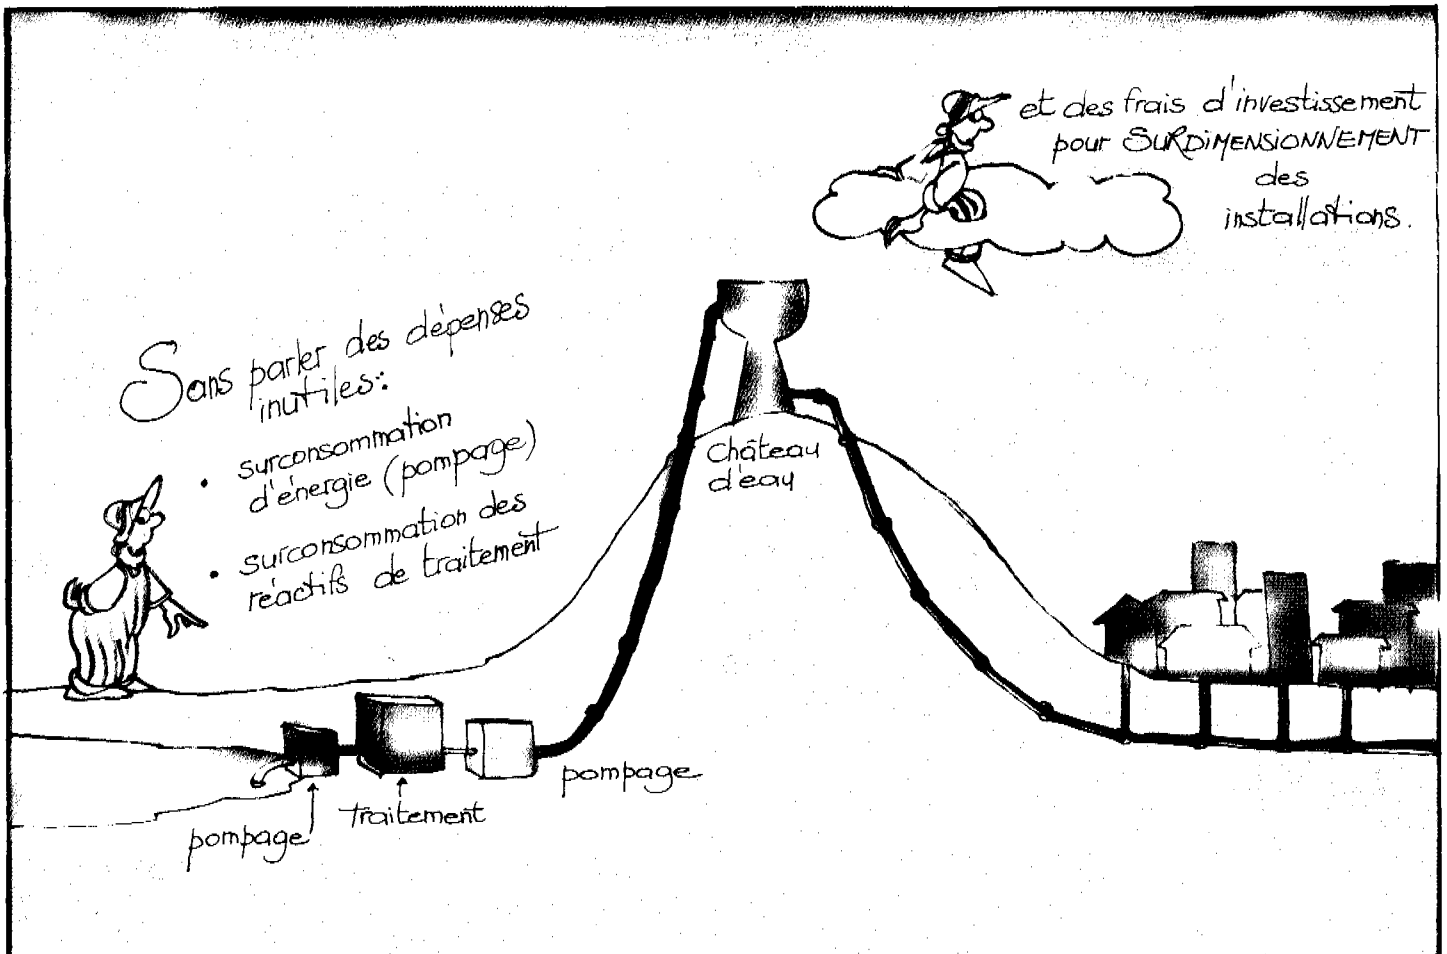 Sans parler des dépenses
inutiles:
• surconsommation
d'énergie (pompage)
• surconsommation des
réactifs de traitement
et des frais d'investissement
pour SURDIMENSIONNEMENT
des
installations.
Château
d'eau
pompage
Traitement
pompage